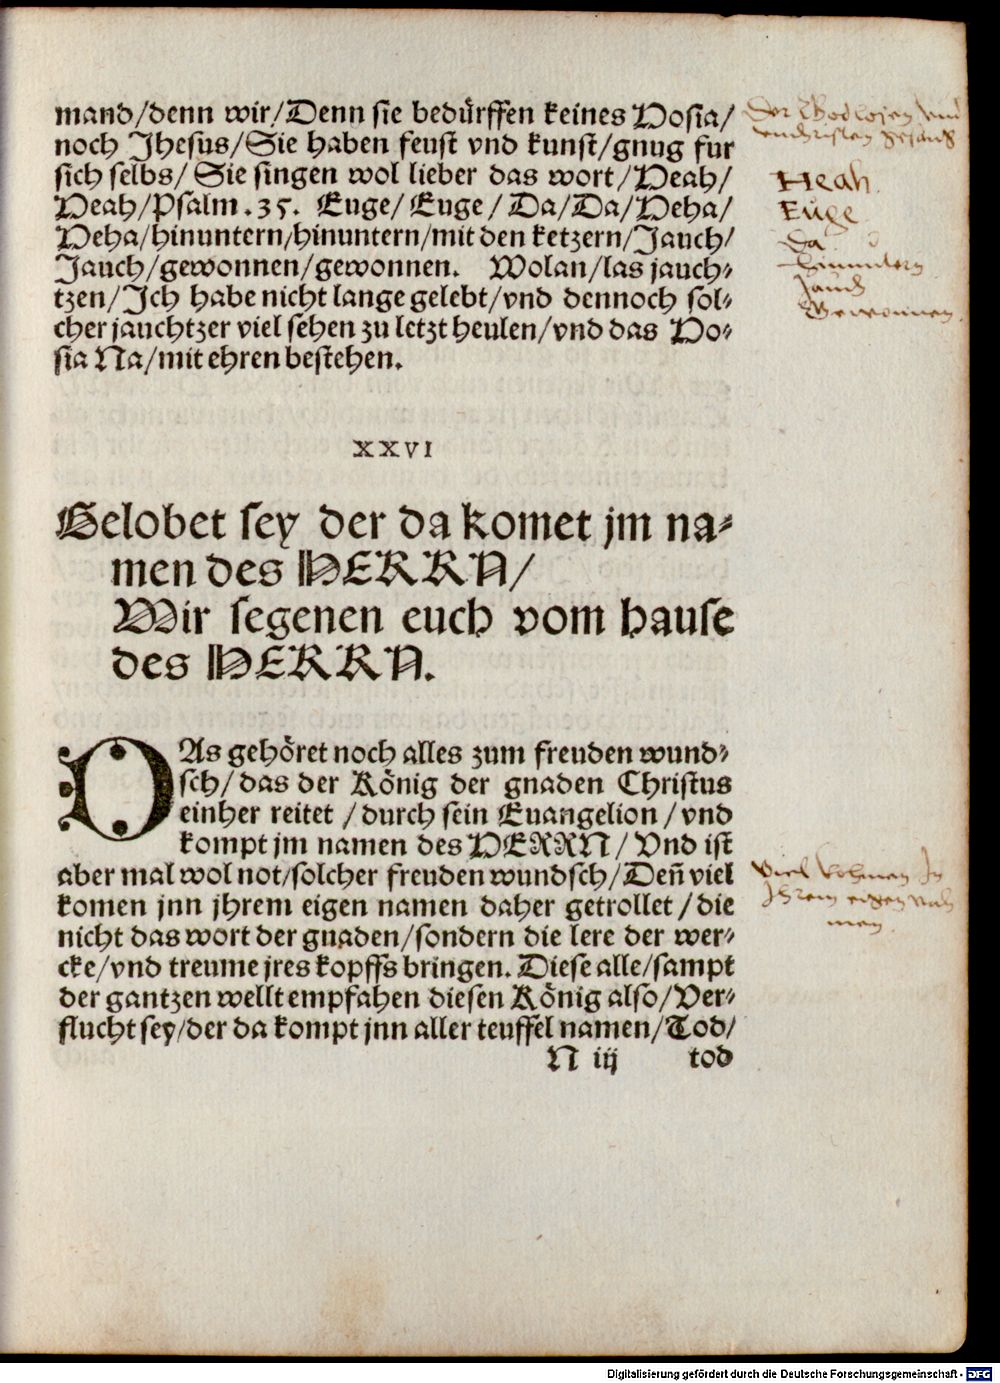 mand/denn wir/Denn sie bedürffen keines Hosia/
noch Jhesus/Sie haben feust vnd kunst/gnug fur
sich selbs/ Sie singen wol lieber das wort/Heah/
Heah/Psalm.35. Euge/ Euge/ Da/Da/Heha/
Heha/hinuntern/hinuntern/mit den ketzern/Jauch/
Jauch/gewonnen/gewonnen. Wolan/las jauch-
tzen/Ich habe nicht lange gelebt/vnd dennoch sol-
cher jauchtzer viel sehen zu letzt heulen/vnd das Ho-
sia Na/mit ehren bestehen.
Der Godlosen vnd
vnchristen gesang
Heah
Euge
Da
hinuntern
Jauch
Gewonnen.
XXVI
Gelobet sey der da komet jm na-
men des HERRN/
Wir segenen euch vom hause
des HERRN.
DAs gehöret noch alles zum freuden wund-
sch/das der König der gnaden Christus
einher reitet /durch sein Euangelion/vnd
kompt jm namen des HERRN/ Vnd ist
aber mal wol not/solcher freuden wundsch/Deñ viel
komen jnn jhrem eigen namen daher getrollet/die
nicht das wort der gnaden/sondern die lere der wer-
cke/vnd treume jres kopffs bringen. Diese alle/sampt
der gantzen wellt empfahen diesen König also/Ver-
flucht sey/der da kompt jnn aller teuffel namen/Tod/
N iij tod
Viel kohmen In
Jhrem eigen nah
men.
Digitalisierung gefördert durch die Deutsche Forschungsgemeinschaft - DFG